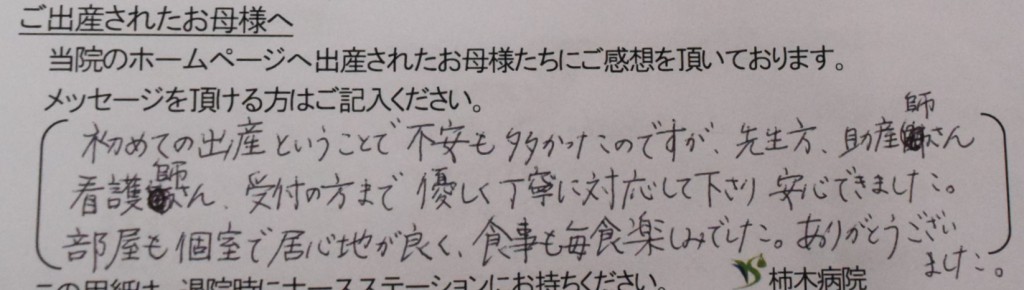 ご出産されたお母様へ
当院のホームページへ出産されたお母様たちにご感想を頂いております。
メッセージを頂ける方はご記入ください。
初めての出産ということで不安も多かったのですが、先生方、助産師さん
看護師さん、受付の方まで優しく丁寧に対応して下さり安心できました。
部屋も個室で居心地が良く、食事も毎食楽しみでした。ありがとうござい
ました。
この用紙は、退院時にナースステーションにお持ちください。
柿木病院